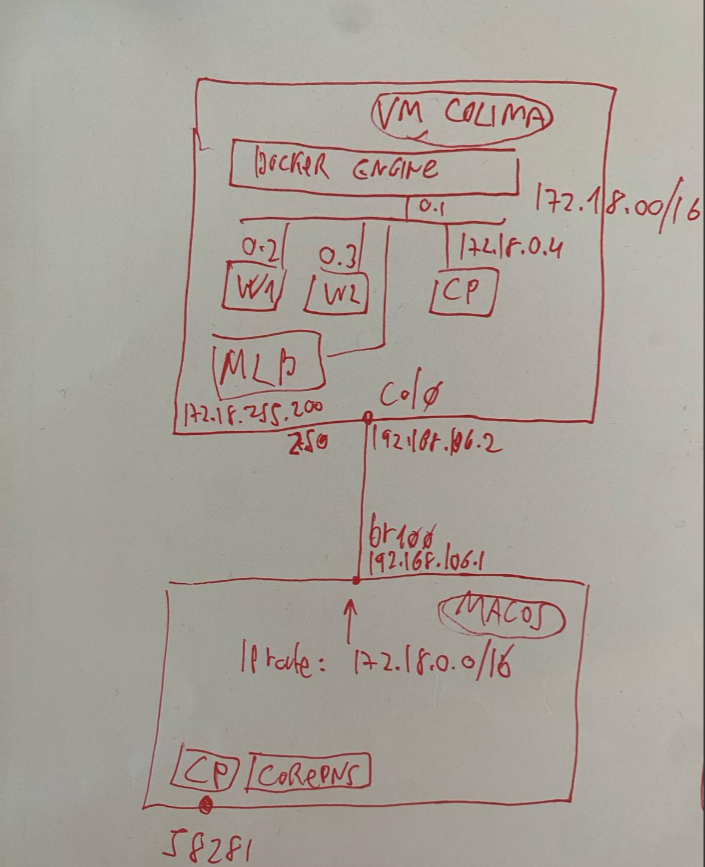 VM COLIMA
DOCKER ENGINE
0.1
172.18.00/16
0.2
0.3
172.18.0.4
W1
W2
CP
MLB
172.18.255.200
250
Col0
192.168.106.2
br100
192.168.106.1
MACOS
IP route: 172.18.0.0/16
CP
COREDNS
58281